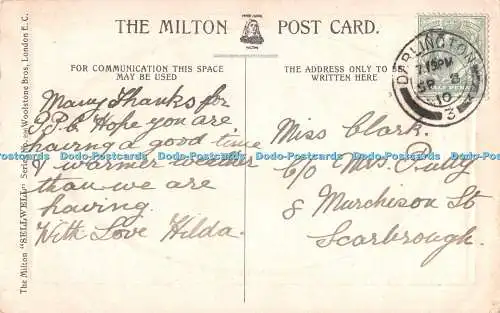 THE MILTON POST CARD.
FOR COMMUNICATION THIS SPACE
MAY BE USED
THE ADDRESS ONLY TO BE
WRITTEN HERE
Many Thanks for
P.P.C. Hope you are
having a good time
& warmer weather
than we are
having.
With Love Hilda.
Miss Clark.
c/o Mrs.
8 Murchison St
Scarbrough.
DARLINGTON
7 15 PM
SP 3
10
3
HALFPENNY
The Milton "SELLWELL" Series No. Woolstone Bros., London E.C.
Dodo-Postcards Dodo-Postcards Dodo-Postcards Dodo-Postcards Dodo-Postcards Dodo-Postcards